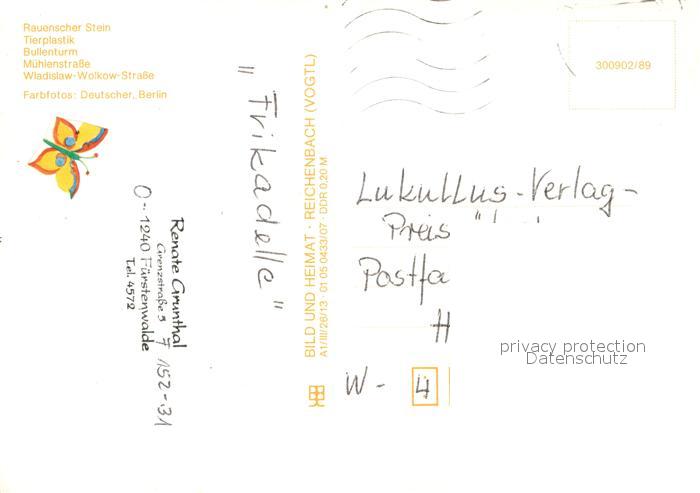 Rauenscher Stein
Tierplastik
Bullenturm
Mühlenstraße
Wladislaw-Wolkow-Straße
Farbfotos: Deutscher, Berlin
"Frikadelle"
Renate Grunthal
Grenzstraße 5
O- 1240 Fürstenwalde
Tel. 4572
BILD UND HEIMAT · REICHENBACH (VOGTL)
A1/III/26/13 · 01 05 0433/07 · DDR 0,20 M
300902/89
Lukullus-Verlag-
Preis "
Postfa
H
W- 4
privacy protection
Datenschutz